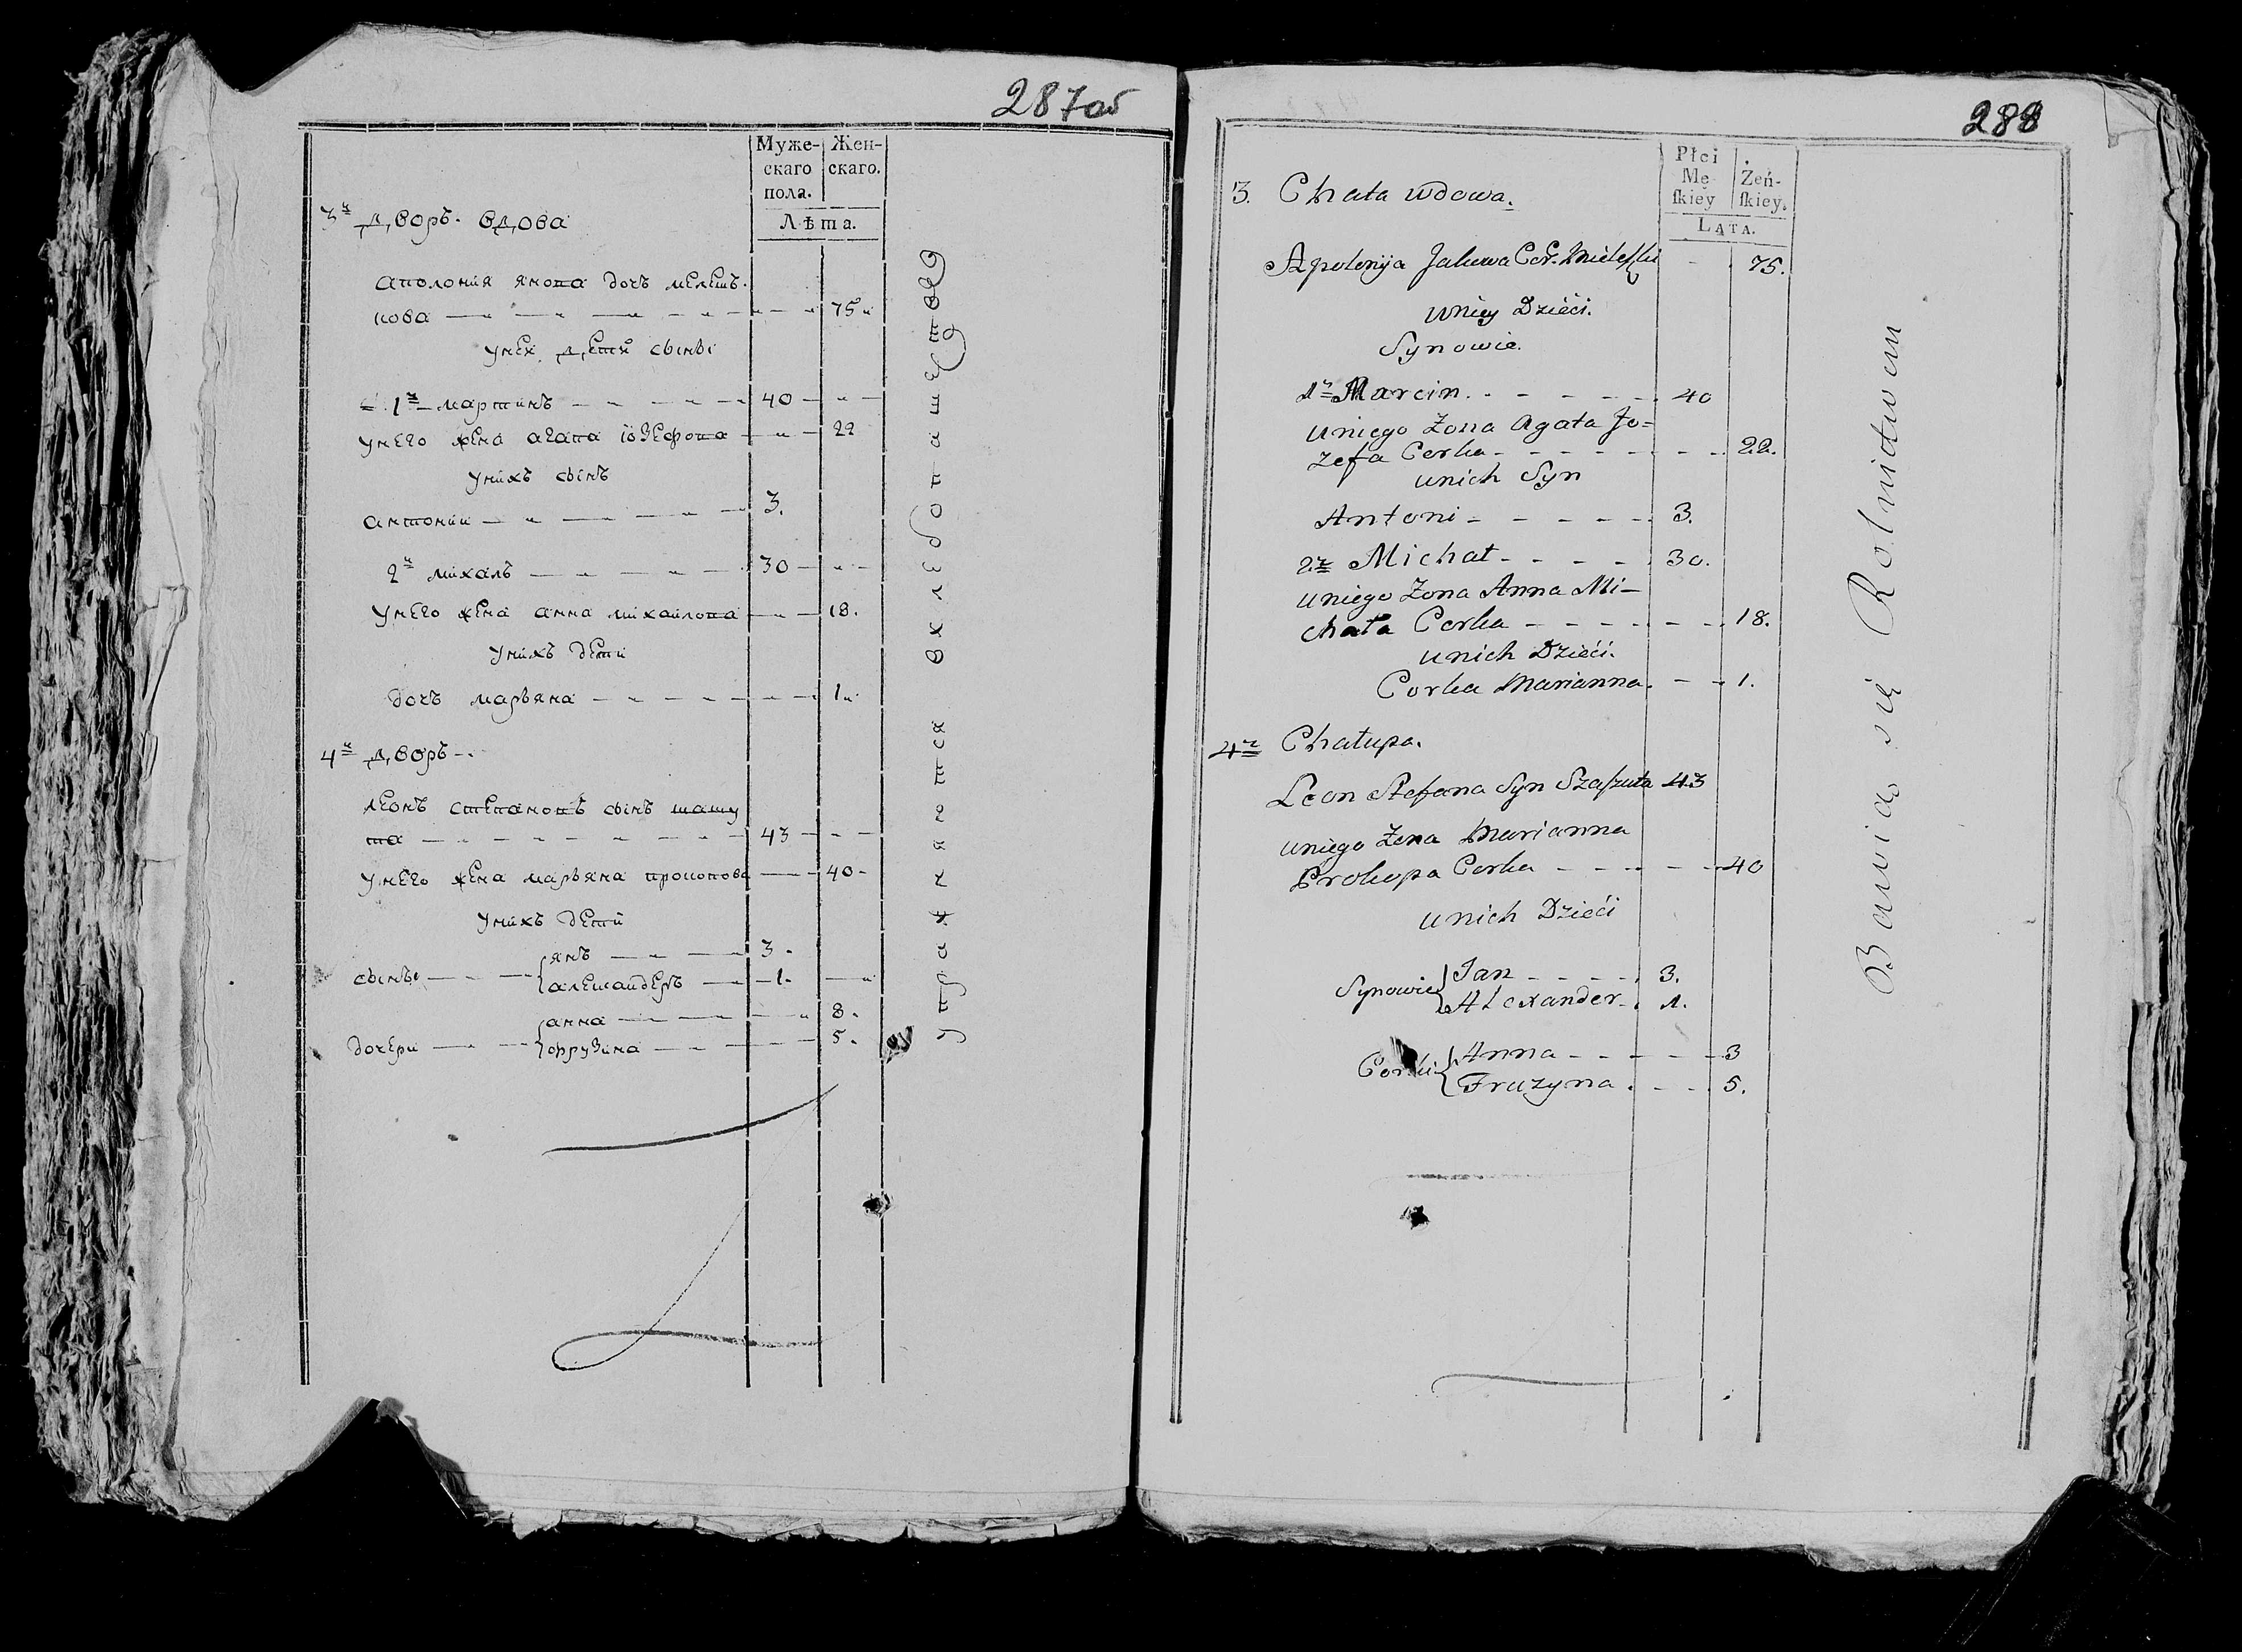 287об
Муже-
скаго
пола.
Жен-
скаго.
Лѣта.
3й дворъ. вдова
аполонія янова дочъ мелешъ-
кова 75
унея дети сыны
1й мартинъ 40
унего жена агата іозефова 22
унихъ сынъ
антоній 3.
2й михалъ 30
унего жена анна михайлова 18.
унихъ дети
дочъ марьяна 1
4й дворъ
леонъ степановъ сынъ шашу
та 43
унего жена марьяна прокопова 40
унихъ дети
сыны янъ 3
алешандеръ 1.
дочери анна 8.
фрузина 5.
упражжаются вхлебопашество
288
Płci
Mę-
ſkiey
Żeń-
ſkiey.
LATA.
3. Chata wdowa.
Apolonija Cor. 75.
uniey Dzieći.
Synowie.
1y Marcin 40
uniego Zona Agata Jo=
zefa Corka 22.
unich Syn
Antoni 3.
2y Michał 30.
uniego Zona Anna Mi-
chała Corka 18.
unich Dzieći.
Corka Marianna 1.
4y Chałupa.
Leon Stefana Syn Szaſzuta 43
uniego Zona Marianna
Prokopa Corka 40
unich Dzieći
Synowie Jan 3.
Alexander 1.
Corki Anna 3
Fruzyna 5.
Bawią się Rolnictwem